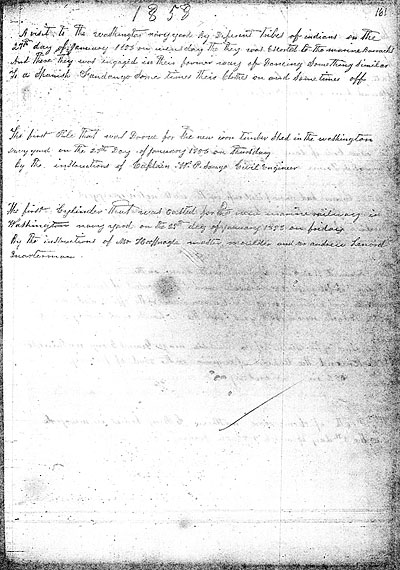 1858
161
A visit to the washington navy yard by Diferent tribes of indians on the
27th day of January 1858 on wensday the they was Escorted to the marine Barracks
And there they was engaged in their former way of Dancing Something Similar
To a Spanish Fandango Some times their Clothes on and Sometimes off
The first Pile that was Drove for the new iron timber Shed in the washington
navy yard on the 28th Day of January 1858 on thursday
by the instructions of Captain W. P. Civil engineer
The first Cylinder that was Casted for the new marine railway in
Washington navy yard on the day of January 1858 on friday
By the instructions of Mr master moulder and Mr andrew
Quarterman